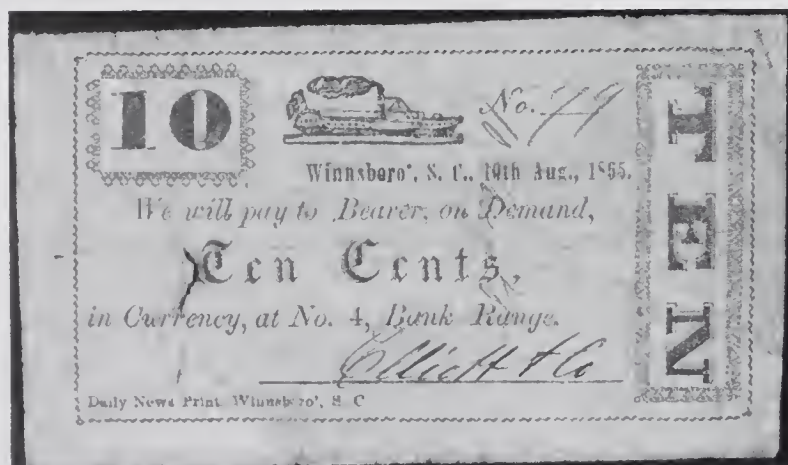 10
No.
Winnsboro', S. C., 10th Aug., 1865.
We will pay to Bearer, on Demand,
Ten Cents,
in Currency, at No. 4, Bank Range.
Elliott & Co
Daily News Print, Winnsboro', S. C
TEN